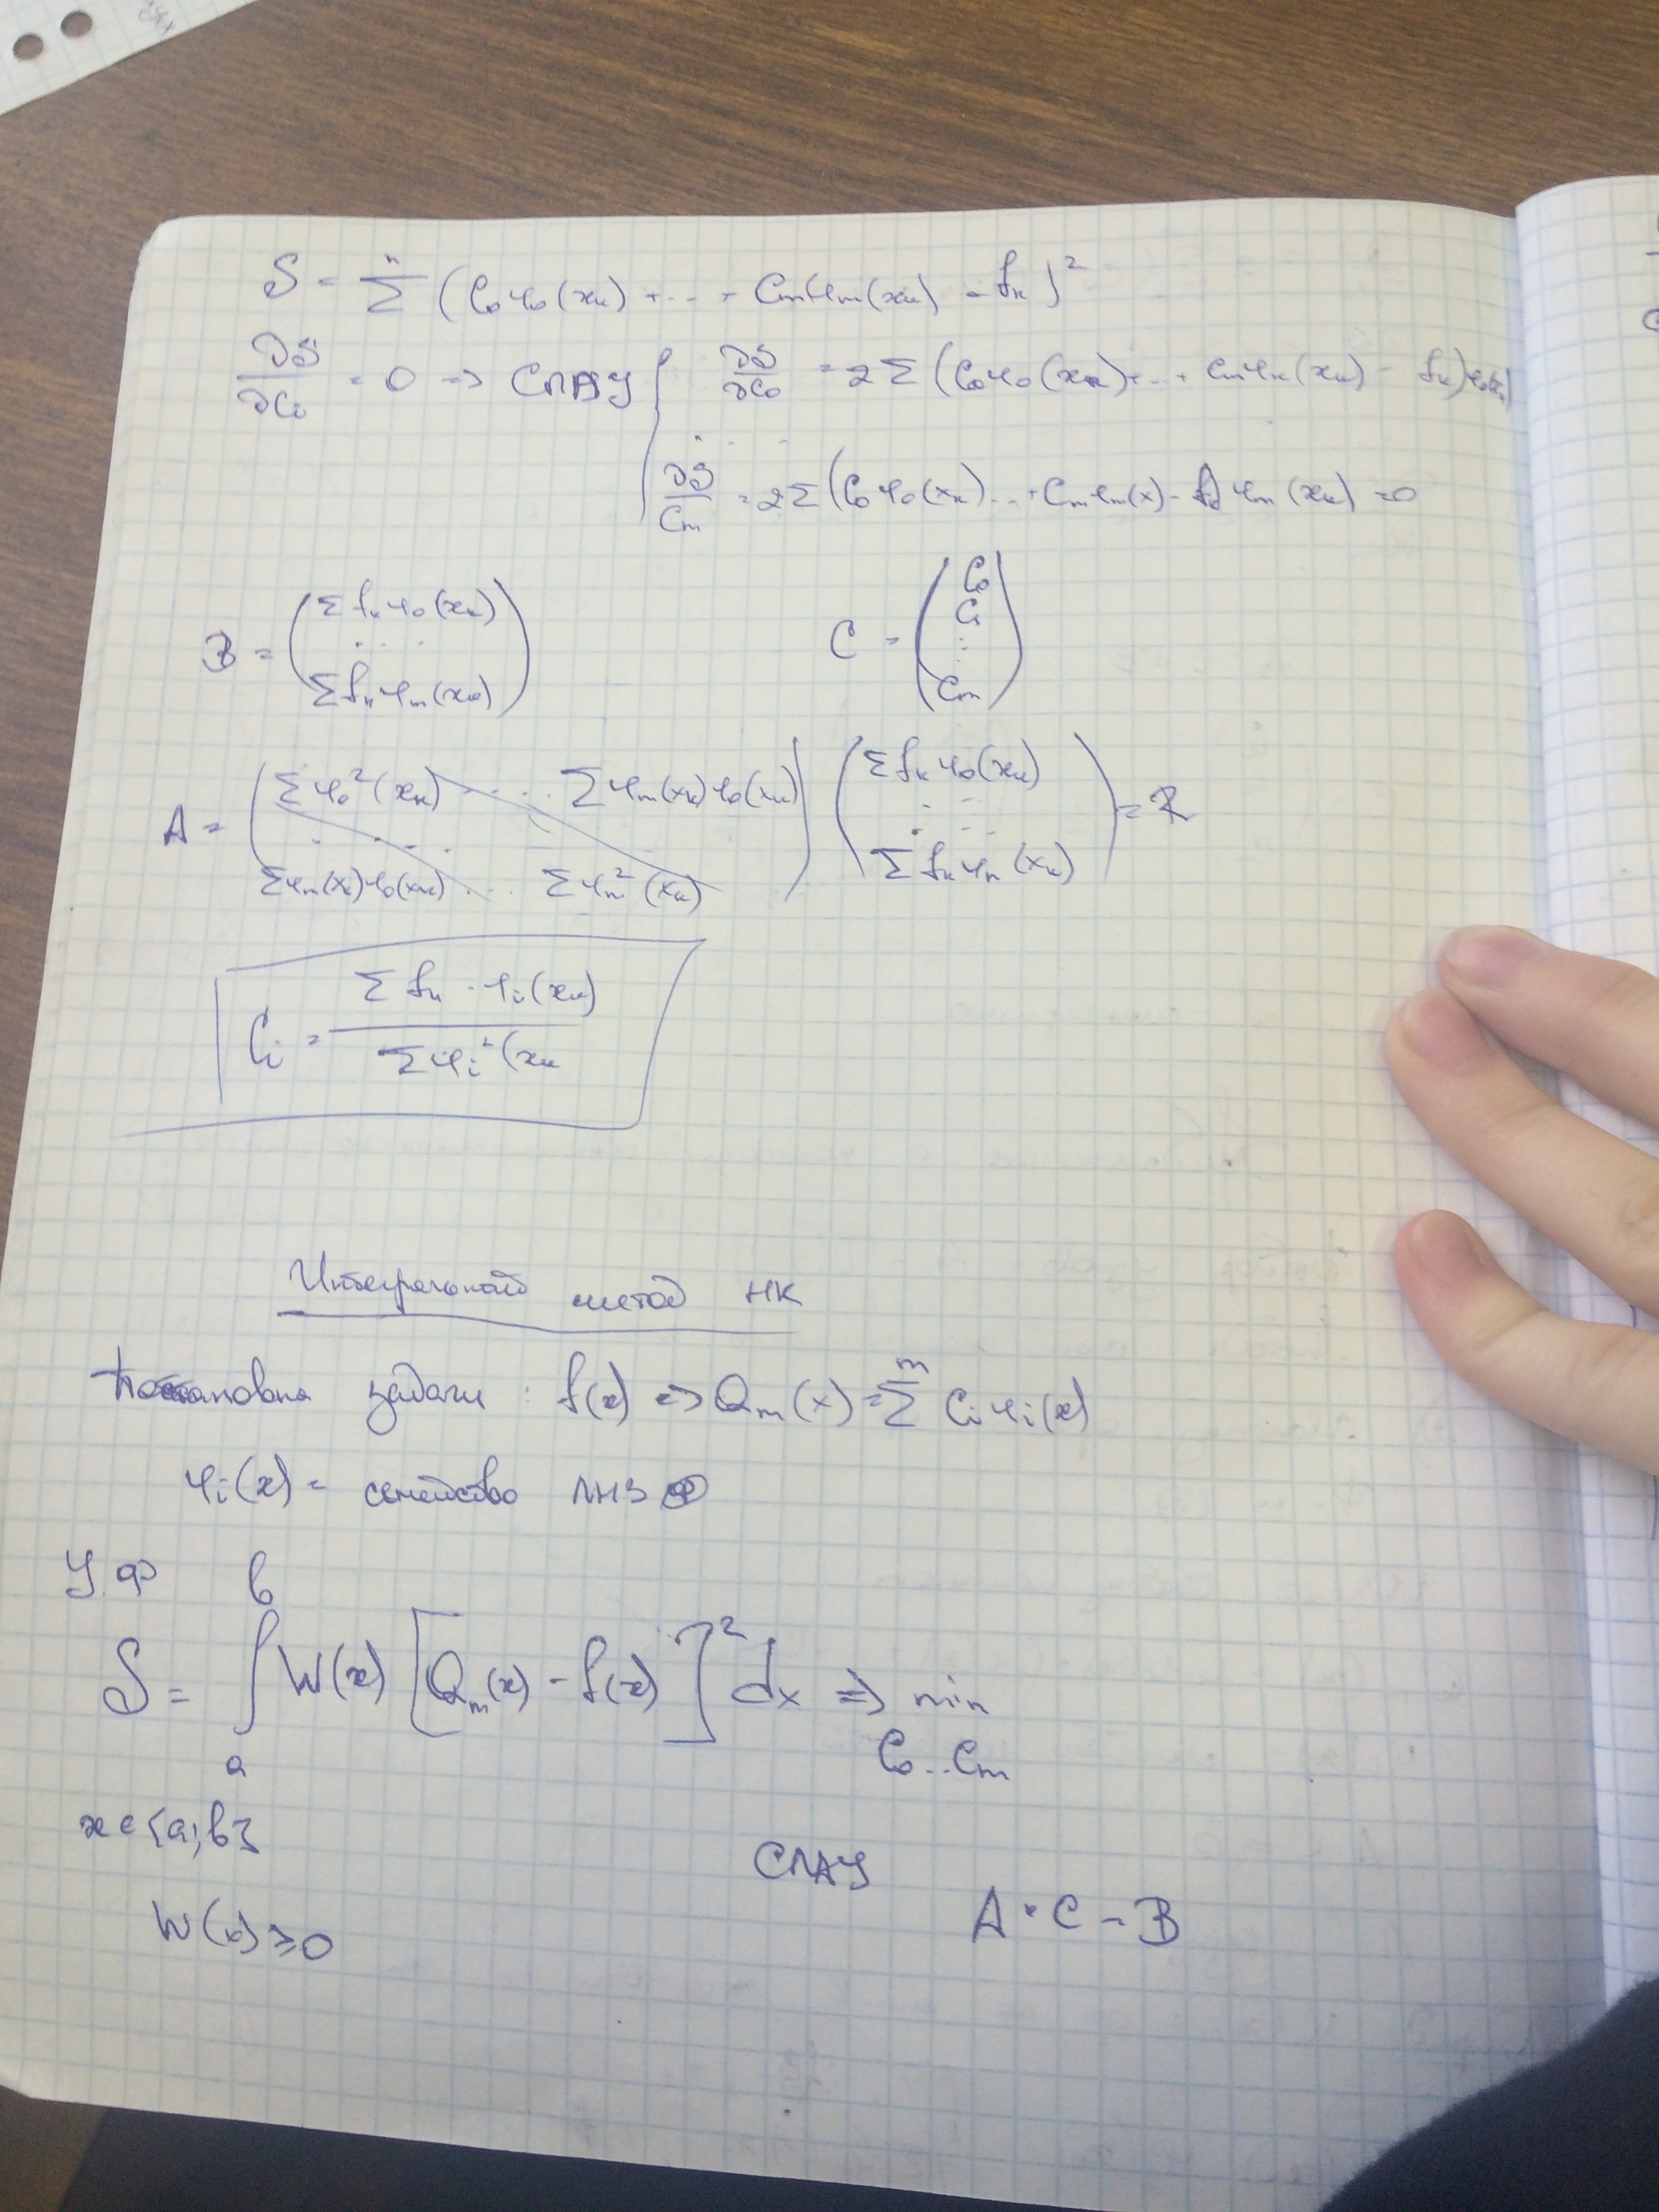 S = Σⁿ (C₀φ₀(xₖ) + ... + Cₘφₘ(xₖ) - fₖ)²
∂S/∂Cᵢ = 0 => СЛАУ { ∂S/∂C₀ = 2Σ(C₀φ₀(xₖ)+...+Cₘφₖ(xₖ) - fₖ)φ₀(xₖ)
. . .
∂S/Cₘ = 2Σ(C₀φ₀(xₖ)...+Cₘφₘ(x) - fₖ)φₘ(xₖ) = 0
B = ( Σfₖφ₀(xₖ) ... Σfₖφₘ(xₖ) )
C = ( C₀ C₁ ... Cₘ )
A = ( Σφ₀²(xₖ) ... Σφₘ(xₖ)φ₀(xₖ)
. . . .
Σφₘ(xₖ)φ₀(xₖ) ... Σφₘ²(xₖ) )
( Σfₖφ₀(xₖ) ... Σfₖφₙ(xₖ) ) = R
Cᵢ = Σfₖ · φᵢ(xₖ) / Σφᵢ²(xₖ
Интегральный метод НК
Постановка задачи : f(x) => Qₘ(x) = Σᵐ Cᵢφᵢ(x)
φᵢ(x) = семейство ЛНЗ Ф
У.Ф
S = ∫ₐᵇ W(x) [Qₘ(x) - f(x)]² dx => min
C₀...Cₘ
x ∈ {a; b}
СЛАУ
W(x) ≥ 0
A · C = B